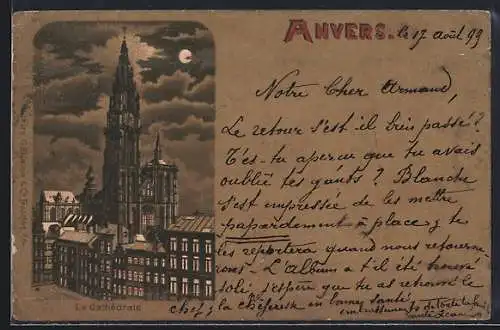 ANVERS.
le 17 août 99
Notre Cher Armand,
Le retour s'est-il bien passé?
T'es-tu aperçu que tu avais
oublié tes gants? Blanche
s'est empressée de les mettre
papardement à place; je te
les reporterai quand nous retourne
rons. L'album a t'il été trouvé
joli, j'espère que tu as retrouvé le
chef, la Chéfesse en bonne santé
embrassements de toute la fam
La Cathédrale